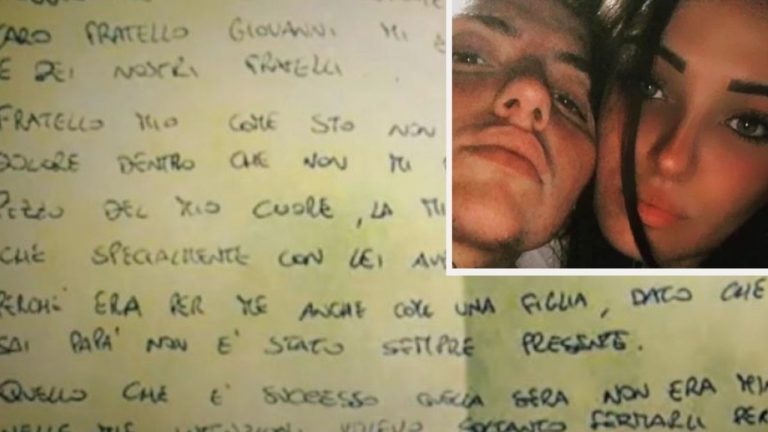 CARO FRATELLO GIOVANNI MI
E DEI NOSTRI FRATELLI
FRATELLO MIO COME STO NON
DOLORE DENTRO CHE NON MI
PEZZO DEL MIO CUORE, LA MI
CHE SPECIALMENTE CON LEI AV
PERCHÈ ERA PER ME ANCHE COME UNA FIGLIA, DATO CHE
SAI PAPÀ NON È STATO SEMPRE PRESENTE.
QUELLO CHE È SUCCESSO QUELLA SERA NON ERA MIA
NELLE MIE INTENZIONI VOLEVO SOLTANTO FERMARLI PER